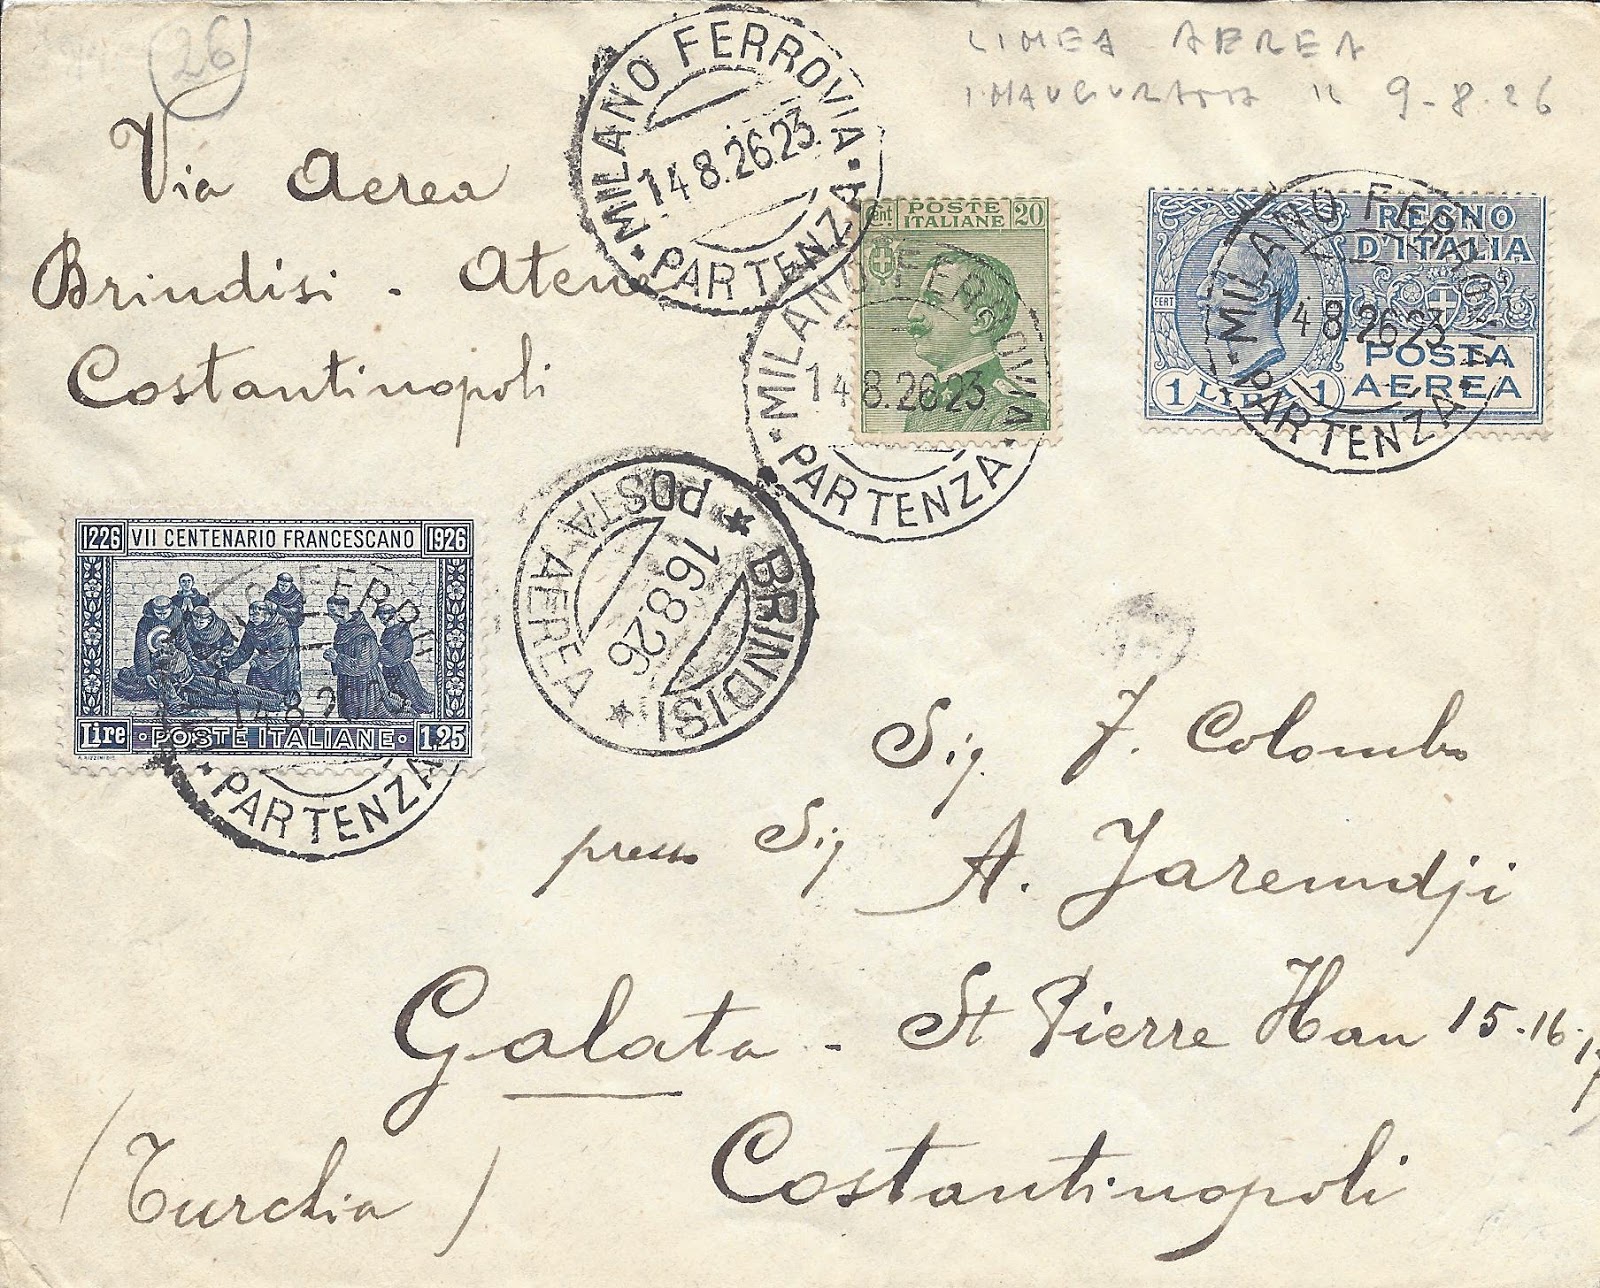 26
LINEA AEREA
INAUGURATA IL 9-8-26
Via Aerea
Brindisi - Atene
Costantinopoli
MILANO FERROVIA
14 8.26.23
PARTENZA
Cent. POSTE ITALIANE 20
MILANO FERROVIA
14 8.26 23
PARTENZA
REGNO D'ITALIA
FERT
POSTA AEREA
1 LIRA 1
MILANO FERROVIA
14 8.26 23
PARTENZA
1226 VII CENTENARIO FRANCESCANO 1926
Lire · POSTE ITALIANE · 1,25
MILANO FERROVIA
14 8.26 23
PARTENZA
BRINDISI
16.8.26
POSTA AEREA
Sig. F. Colombo
presso Sig A. Jaremdji
Galata - St Pierre Han 15-16-17
Costantinopoli
(Turchia)